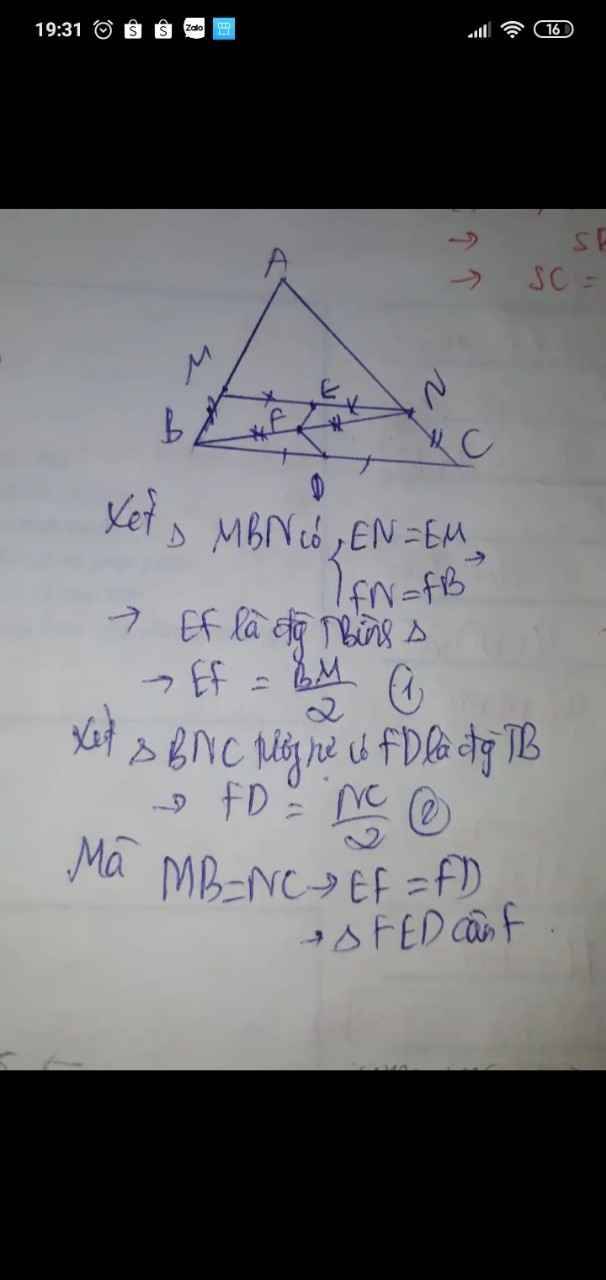 19:31 Zalo 16
→ S
→ SC =
A
M
E
N
B
F
C
D
Xét △ MBN có EN = EM
FN = FB →
→ EF là đg TBình △
→ EF = BM/2 ①
Xét △ BNC tương tự có FD là đg TB
→ FD = NC/2 ②
Mà MB = NC → EF = FD
→ △ FED cân F.